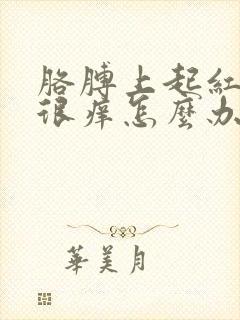 胳膊上起紅
很痒怎麼办
華美月